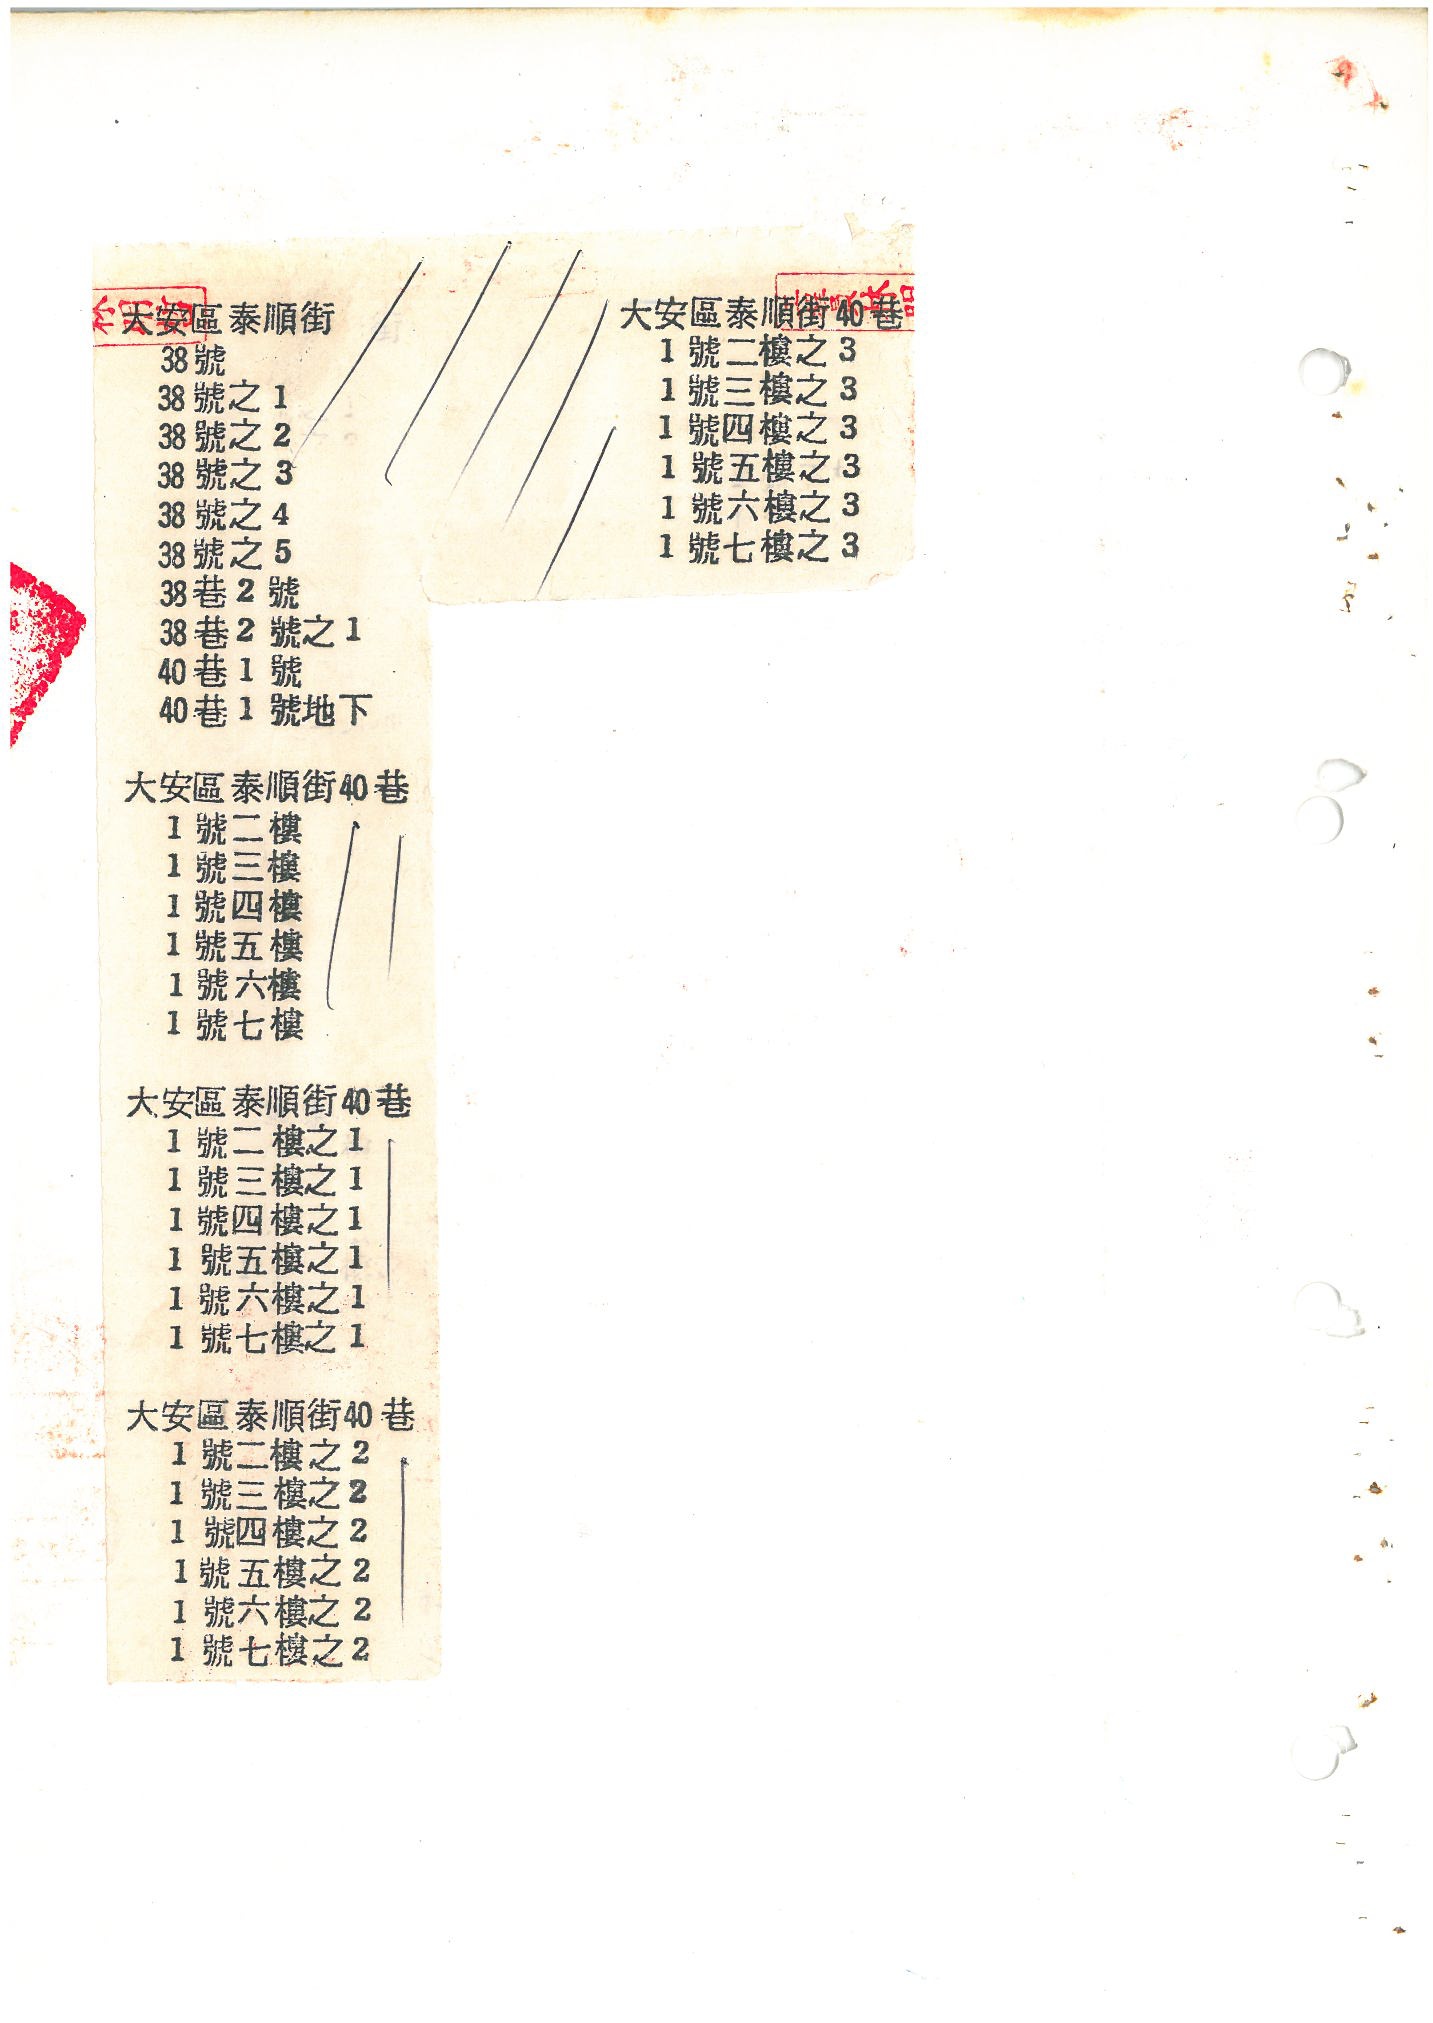 大安區泰順街
38號
38號之1
38號之2
38號之3
38號之4
38號之5
38巷2號
38巷2號之1
40巷1號
40巷1號地下
大安區泰順街40巷
1號二樓
1號三樓
1號四樓
1號五樓
1號六樓
1號七樓
大安區泰順街40巷
1號二樓之1
1號三樓之1
1號四樓之1
1號五樓之1
1號六樓之1
1號七樓之1
大安區泰順街40巷
1號二樓之2
1號三樓之2
1號四樓之2
1號五樓之2
1號六樓之2
1號七樓之2
大安區泰順街40巷
1號二樓之3
1號三樓之3
1號四樓之3
1號五樓之3
1號六樓之3
1號七樓之3